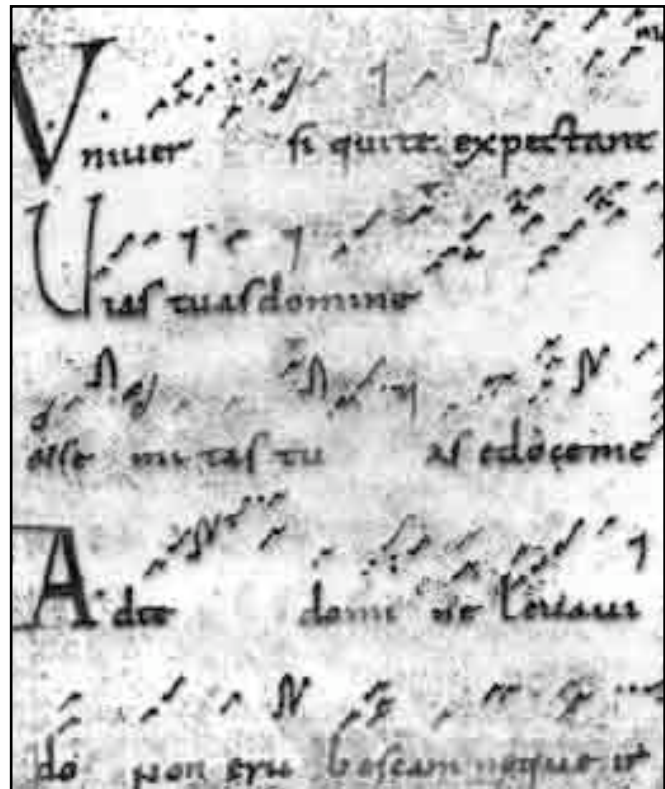 Vniuer si quite expectant
Uias tuas domine
mi tas tu as edoceme
Adte domi ne leuaui
do non eru bescam neque ir